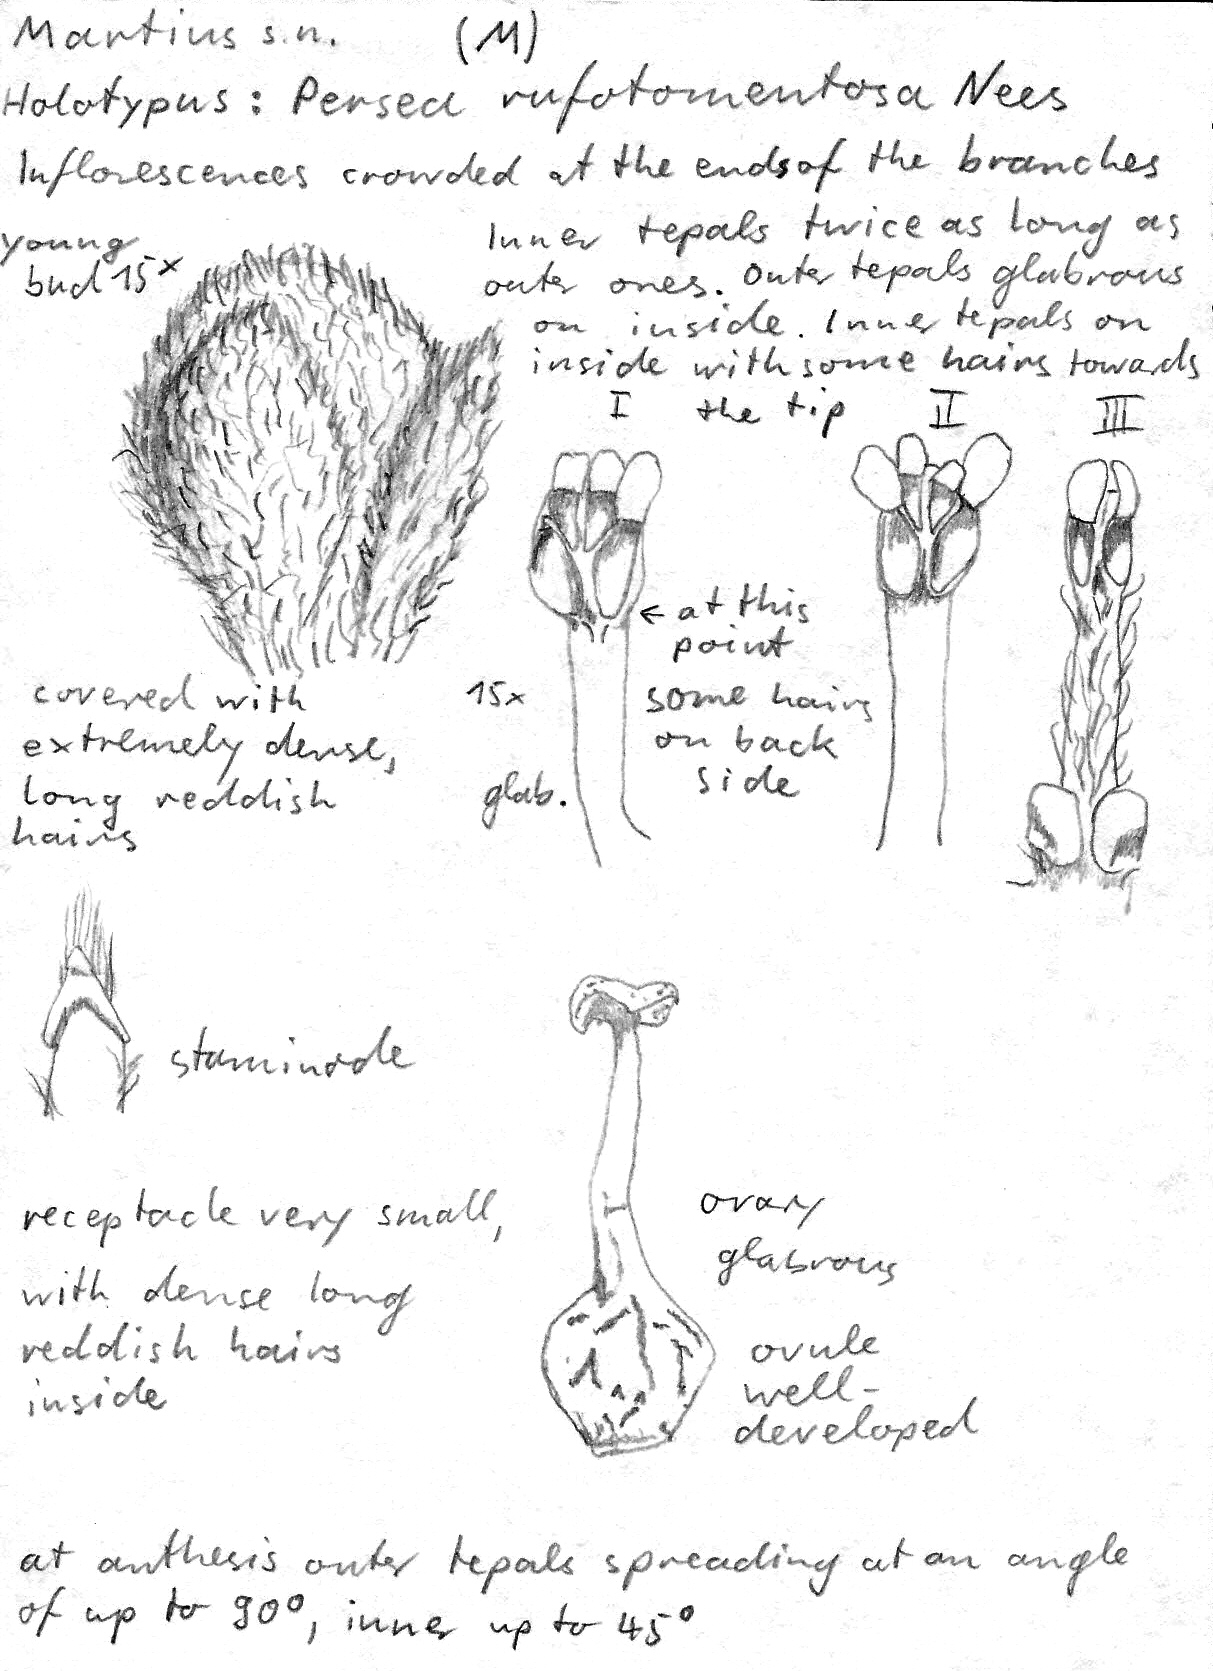 Martius s.n. (M)
Holotypus: Persea rufotomentosa Nees
Inflorescences crowded at the ends of the branches
young
bud 15x
Inner tepals twice as long as
outer ones. Outer tepals glabrous
on inside. Inner tepals on
inside with some hairs towards
the tip
I II III
← at this
point
some hairs
on back
side
15x
glab.
covered with
extremely dense,
long reddish
hairs
staminode
receptacle very small,
with dense long
reddish hairs
inside
ovary
glabrous
ovule
well-
developed
at anthesis outer tepals spreading at an angle
of up to 90°, inner up to 45°